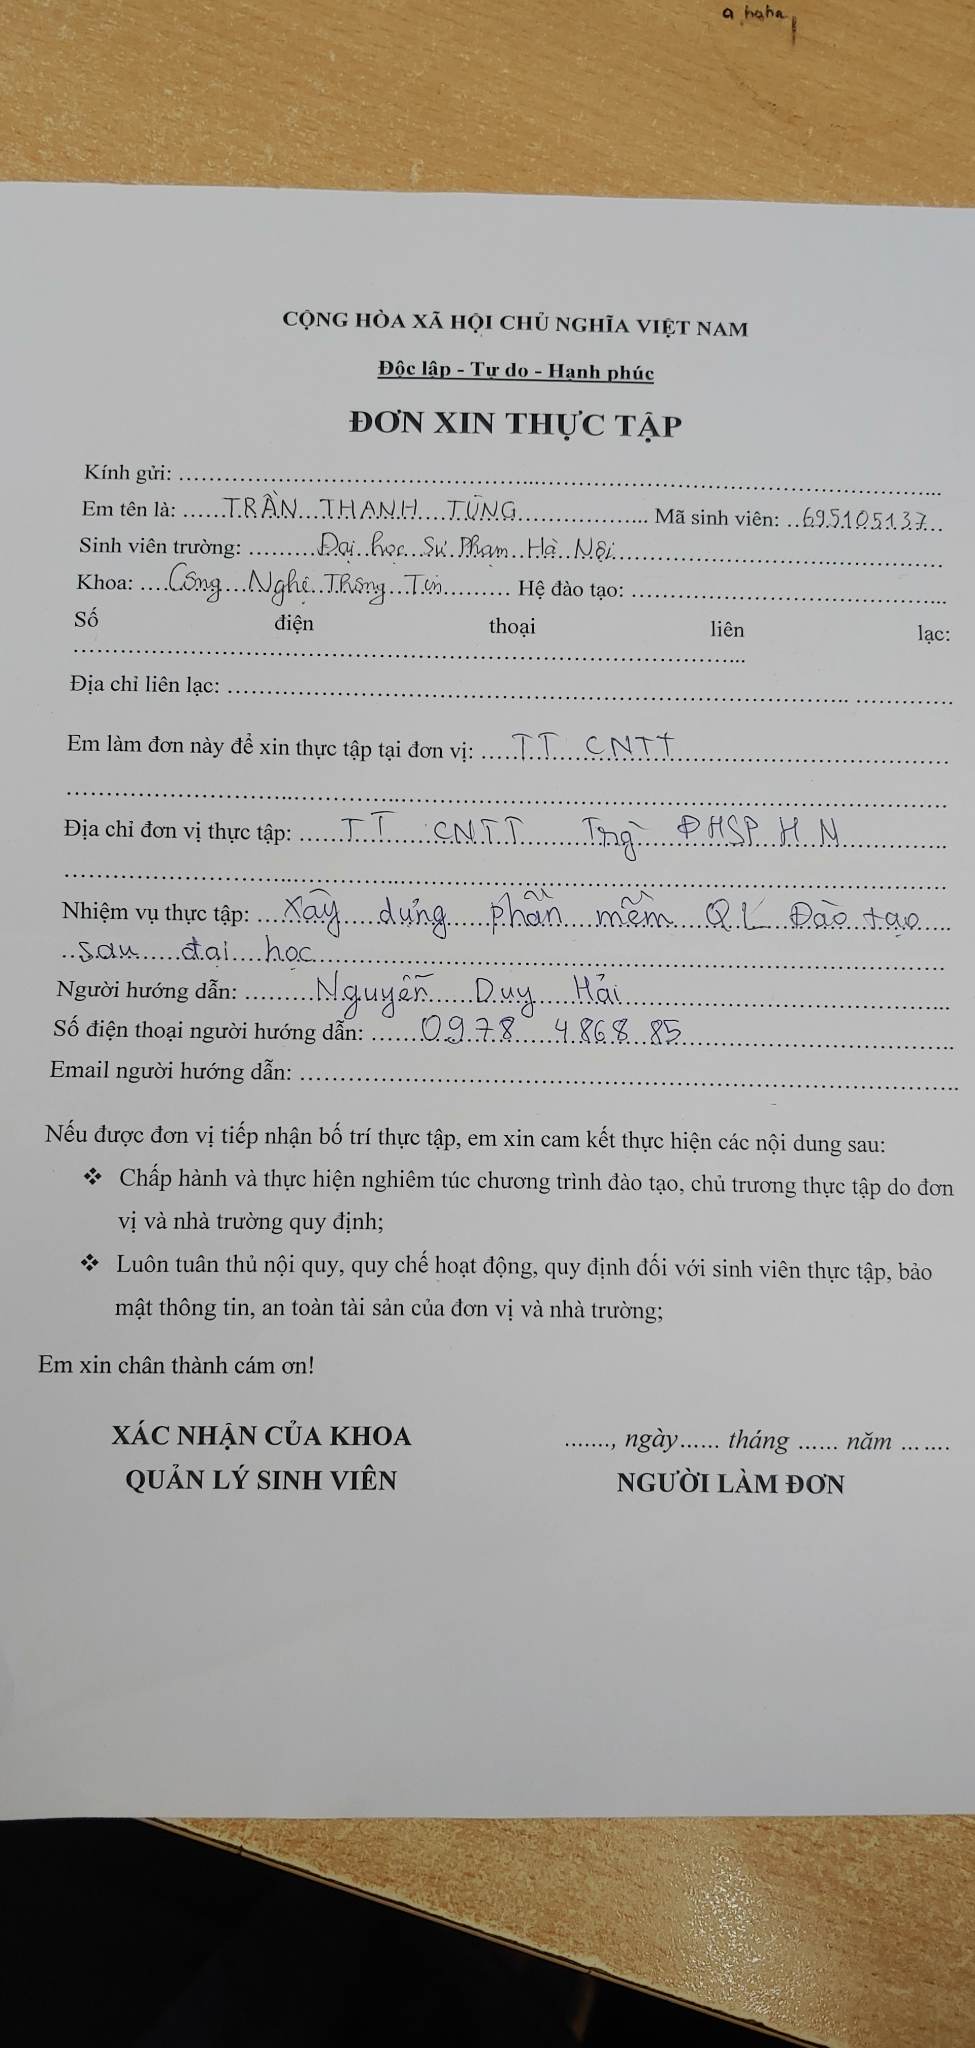 a haha
CỘNG HÒA XÃ HỘI CHỦ NGHĨA VIỆT NAM
Độc lập - Tự do - Hạnh phúc
ĐƠN XIN THỰC TẬP
Kính gửi:
Em tên là: TRẦN THANH TÙNG Mã sinh viên: 695105137
Sinh viên trường: Đại học Sư Phạm Hà Nội
Khoa: Công Nghệ Thông Tin Hệ đào tạo:
Số điện thoại liên lạc:
Địa chỉ liên lạc:
Em làm đơn này để xin thực tập tại đơn vị: TT CNTT
Địa chỉ đơn vị thực tập: TT CNTT Trg ĐHSP HN
Nhiệm vụ thực tập: Xây dựng phần mềm QL Đào tạo
sau đại học
Người hướng dẫn: Nguyễn Duy Hải
Số điện thoại người hướng dẫn: 0978 4868 85
Email người hướng dẫn:
Nếu được đơn vị tiếp nhận bố trí thực tập, em xin cam kết thực hiện các nội dung sau:
❖ Chấp hành và thực hiện nghiêm túc chương trình đào tạo, chủ trương thực tập do đơn
vị và nhà trường quy định;
❖ Luôn tuân thủ nội quy, quy chế hoạt động, quy định đối với sinh viên thực tập, bảo
mật thông tin, an toàn tài sản của đơn vị và nhà trường;
Em xin chân thành cám ơn!
XÁC NHẬN CỦA KHOA ......., ngày...... tháng ...... năm .......
QUẢN LÝ SINH VIÊN NGƯỜI LÀM ĐƠN